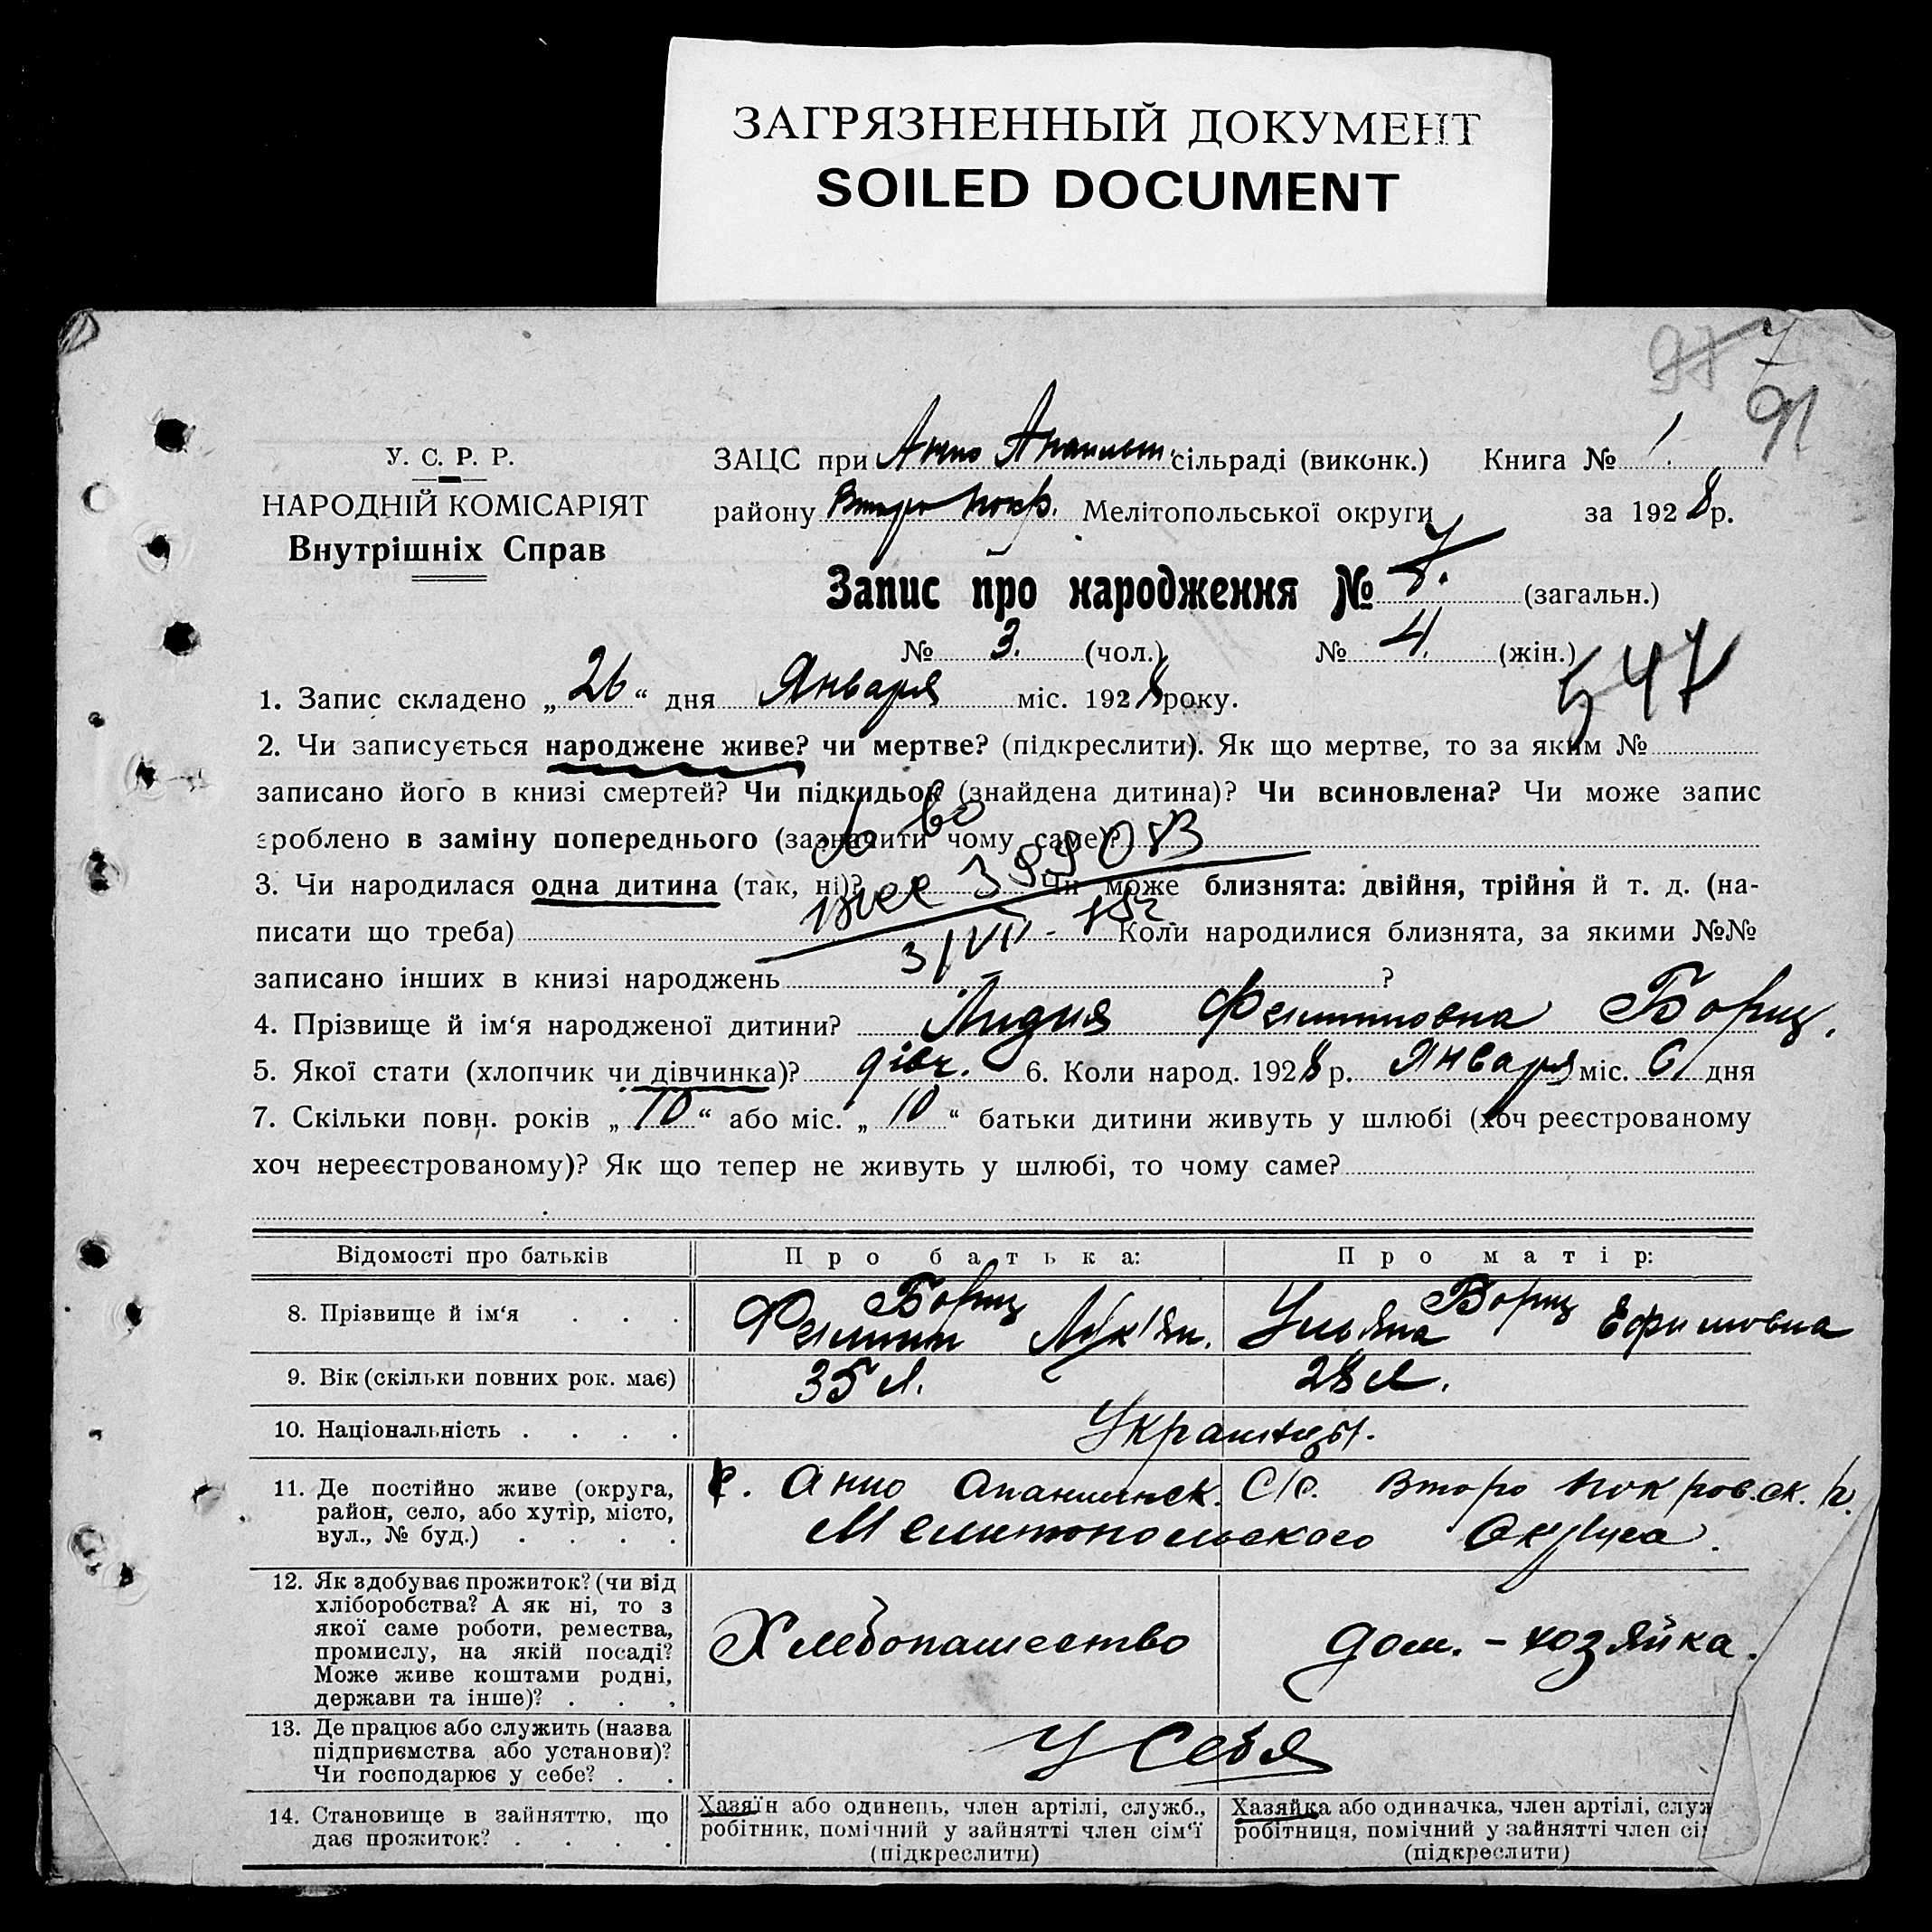 ЗАГРЯЗНЕННЫЙ ДОКУМЕНТ
SOILED DOCUMENT
97 7
91
У. С. Р. Р.
НАРОДНІЙ КОМІСАРІЯТ
Внутрішніх Справ
ЗАЦС при Анно сільраді (виконк.) Книга № 1.
району Второ Покр. Мелітопольської округи за 1928 р.
Запис про народження № 7. (загальн.)
№ 3. (чол.) № 4. (жін.)
547
1. Запис складено „ 26 “ дня Января міс. 1928 року.
2. Чи записується народжене живе? чи мертве? (підкреслити). Як що мертве, то за яким №
записано його в книзі смертей? Чи підкидьок (знайдена дитина)? Чи всиновлена? Чи може запис
зроблено в заміну попереднього (зазначити чому саме)?
3. Чи народилася одна дитина (так, ні)? Чи може близнята: двійня, трійня й т. д. (на-
писати що треба) Коли народилися близнята, за якими №№
записано інших в книзі народжень ?
4. Прізвище й ім‘я народженої дитини? Лидия Филипповна Борщ.
5. Якої стати (хлопчик чи дівчинка)? дівч. 6. Коли народ. 1928 р. Января міс. 6 дня
7. Скільки повн. років „ 10 “ або міс. „ 10 “ батьки дитини живуть у шлюбі (хоч реєстрованому
хоч нереєстрованому)? Як що тепер не живуть у шлюбі, то чому саме?
Відомості про батьків Про батька: Про матір:
8. Прізвище й ім‘я Борщ Филипп Лук'ян. Борщ Ульяна Ефимовна
9. Вік (скільки повних рок. має) 35 л. 28 л.
10. Національність Украинцы.
11. Де постійно живе (округа,
район, село, або хутір, місто,
вул., № буд.)
с. Анно Апанлинск. С/С. Второ Покровск. р.
Мелитопольского Округа.
12. Як здобуває прожиток? (чи від
хліборобства? А як ні, то з
якої саме роботи, ремества,
промислу, на якій посаді?
Може живе коштами родні,
держави та інше)?
Хлебопашество дом. - хозяйка.
13. Де працює або служить (назва
підприємства або установи)?
Чи господарює у себе?
У себя
14. Становище в зайняттю, що
дає прожиток?
Хазяїн або одинець, член артілі, служб.,
робітник, помічний у зайнятті член сім‘ї
(підкреслити)
Хазяйка або одиначка, член артілі, служ
робітниця, помічний у зайнятті член сі
(підкреслити)